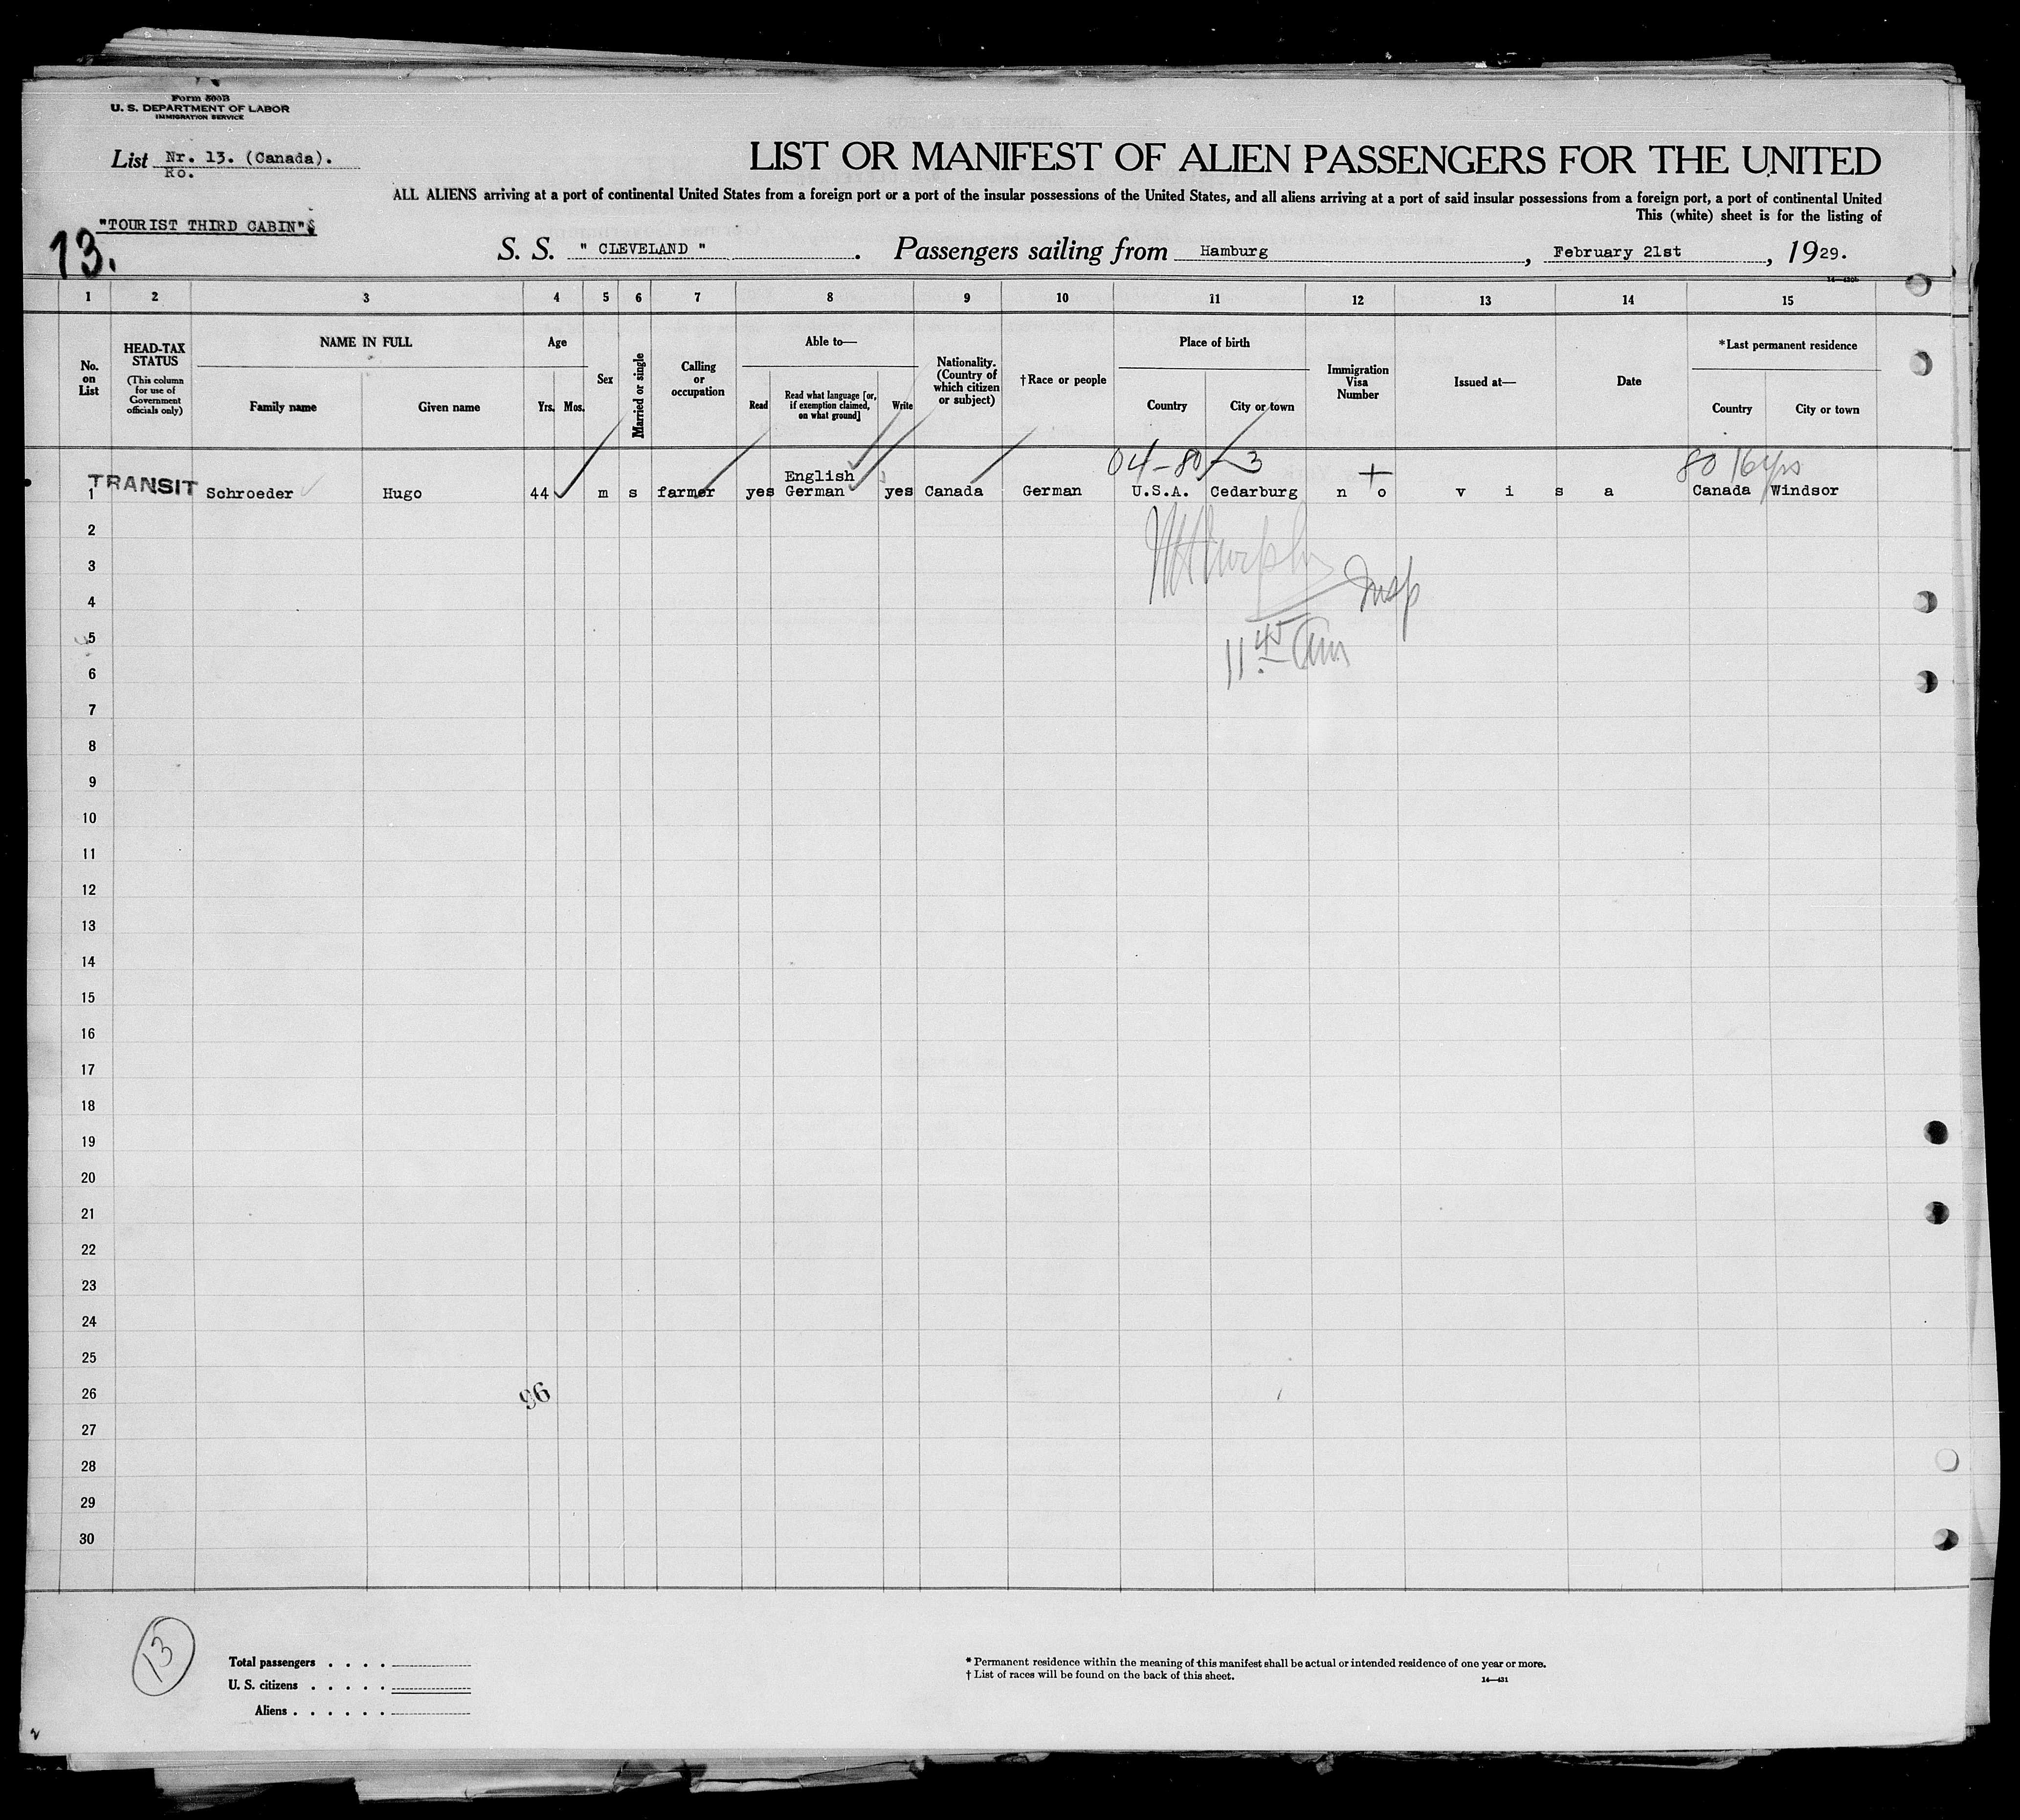 Form 500B
U. S. DEPARTMENT OF LABOR
IMMIGRATION SERVICE
List Nr. 13. (Canada).
Ro.
LIST OR MANIFEST OF ALIEN PASSENGERS FOR THE UNITED
ALL ALIENS arriving at a port of continental United States from a foreign port or a port of the insular possessions of the United States, and all aliens arriving at a port of said insular possessions from a foreign port, a port of continental United
This (white) sheet is for the listing of
"TOURIST THIRD CABIN"
13.
S. S. " CLEVELAND ". Passengers sailing from Hamburg, February 21st, 1929.
1 2 3 4 5 6 7 8 9 10 11 12 13 14 15
No. on List
HEAD-TAX STATUS
(This column for use of Government officials only)
NAME IN FULL
Family name Given name
Age
Yrs. Mos.
Sex
Married or single
Calling or occupation
Able to—
Read
Read what language [or, if exemption claimed, on what ground]
Write
Nationality. (Country of which citizen or subject)
†Race or people
Place of birth
Country City or town
Immigration Visa Number
Issued at—
Date
*Last permanent residence
Country City or town
04-80-3 80 16yrs
English
1 TRANSIT Schroeder Hugo 44 m s farmer yes German yes Canada German U.S.A. Cedarburg n o v i s a Canada Windsor
2
3
Insp
4
5
11 45 Am
6
7
8
9
10
11
12
13
14
15
16
17
18
19
20
21
22
23
24
25
26
96
27
28
29
30
13
Total passengers . . . .
U. S. citizens . . . . .
Aliens . . . . . .
* Permanent residence within the meaning of this manifest shall be actual or intended residence of one year or more.
† List of races will be found on the back of this sheet.
14—431